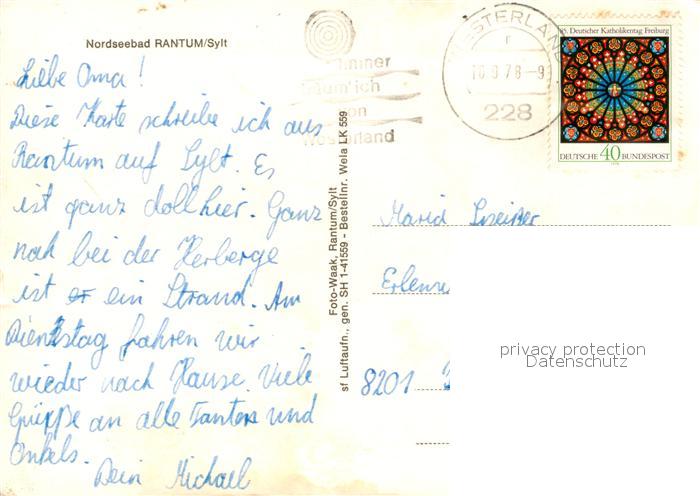 Nordseebad RANTUM/Sylt
Liebe Oma!
Diese Karte schreibe ich aus
Rantum auf Sylt. Es
ist ganz doll hier. Ganz
nah bei der Herberge
ist er ein Strand. Am
Dienstag fahren wir
wieder nach Hause. Viele
Grüße an alle Tanten und
Onkels.
Dein Michael
Foto-Waak, Rantum/Sylt
sf Luftaufn., gen. SH 1-41559 - Bestellnr. Wela LK 559
Immer
träum' ich
von
Westerland
WESTERLAND
r
10.9.78-9
228
85. Deutscher Katholikentag Freiburg
DEUTSCHE 40 BUNDESPOST
1978
Maria
8201
privacy protection
Datenschutz